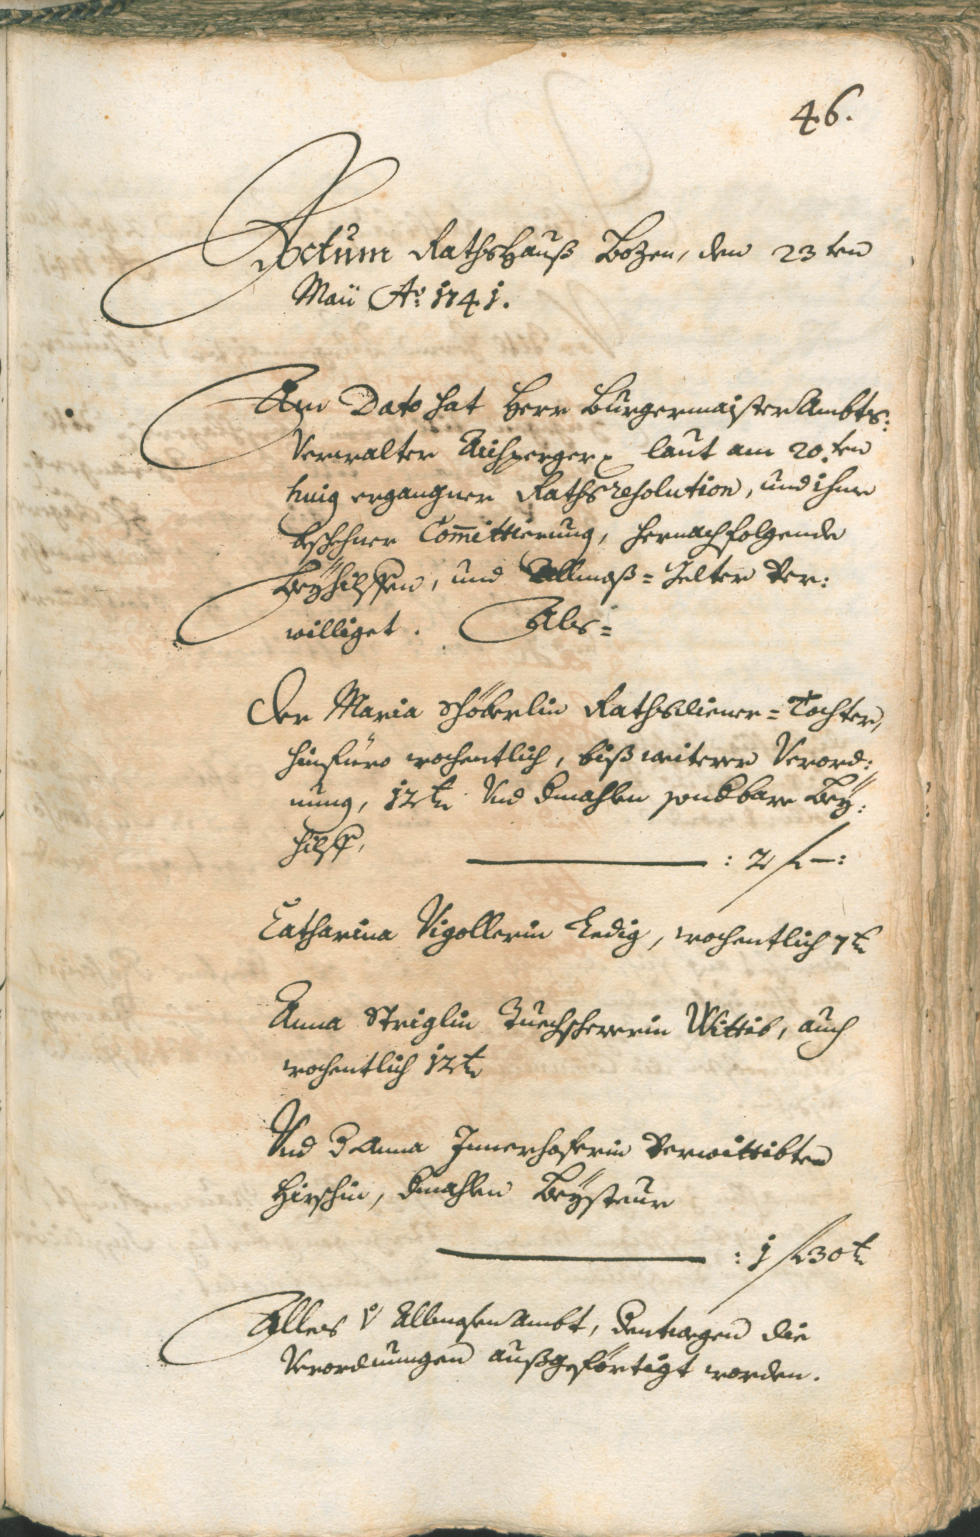 46.
Actum Rathshauß Bozen, den 23ten
Maii Ao: 1741.
An Dato hat Herr BurgermaisterAmbts:
Verwalter Aichperger laut am 20.ten
huig ergangner Rathsresolution, und ihme
beschehner Com̅ittierung, hernachfolgende
Beÿhilffen, und Allmoß=Gelter ver:
williget. Als=
Der Maria Schöberlin Rathsdiener=Tochter,
hinfüro wochentlich, biß weitere Verord:
nung, 12 kr Und dmahlen Beÿ:
hilff,
: 2 f —:
Catharina Vigollerin Ledig, wochentlich 7 kr
Anna Striglin Tuechschererin Wittib, auch
wochentlich 12 kr
Und Anna Innerhoferin verwittibten
Hirschin, dmahlen Beÿsteur
: 1 f 30 kr
Alles Allmosen Ambt, dentwegen die
Verordnungen außgeförtigt worden.